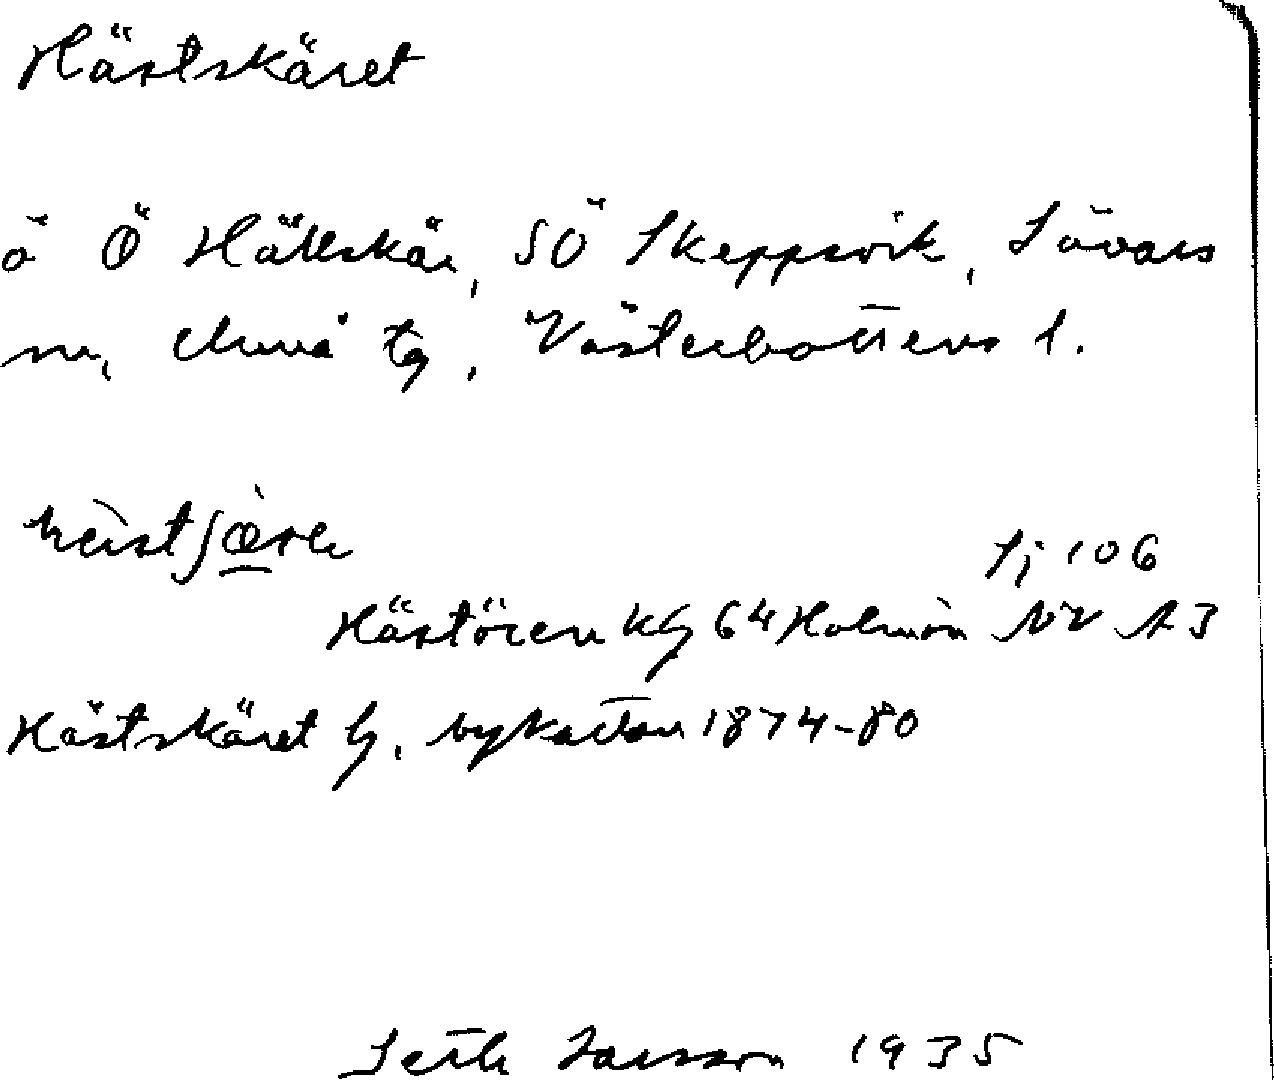 Hästskäret
ö Ö Hällskär, SÖ Skeppsvik, Sävars
sn, Umeå tg, Västerbottens l.
Sj 106
Hästören kg 64 Holmön NV A3
Hästskäret lg, bykartan 1874-80
Seth Larsson 1935